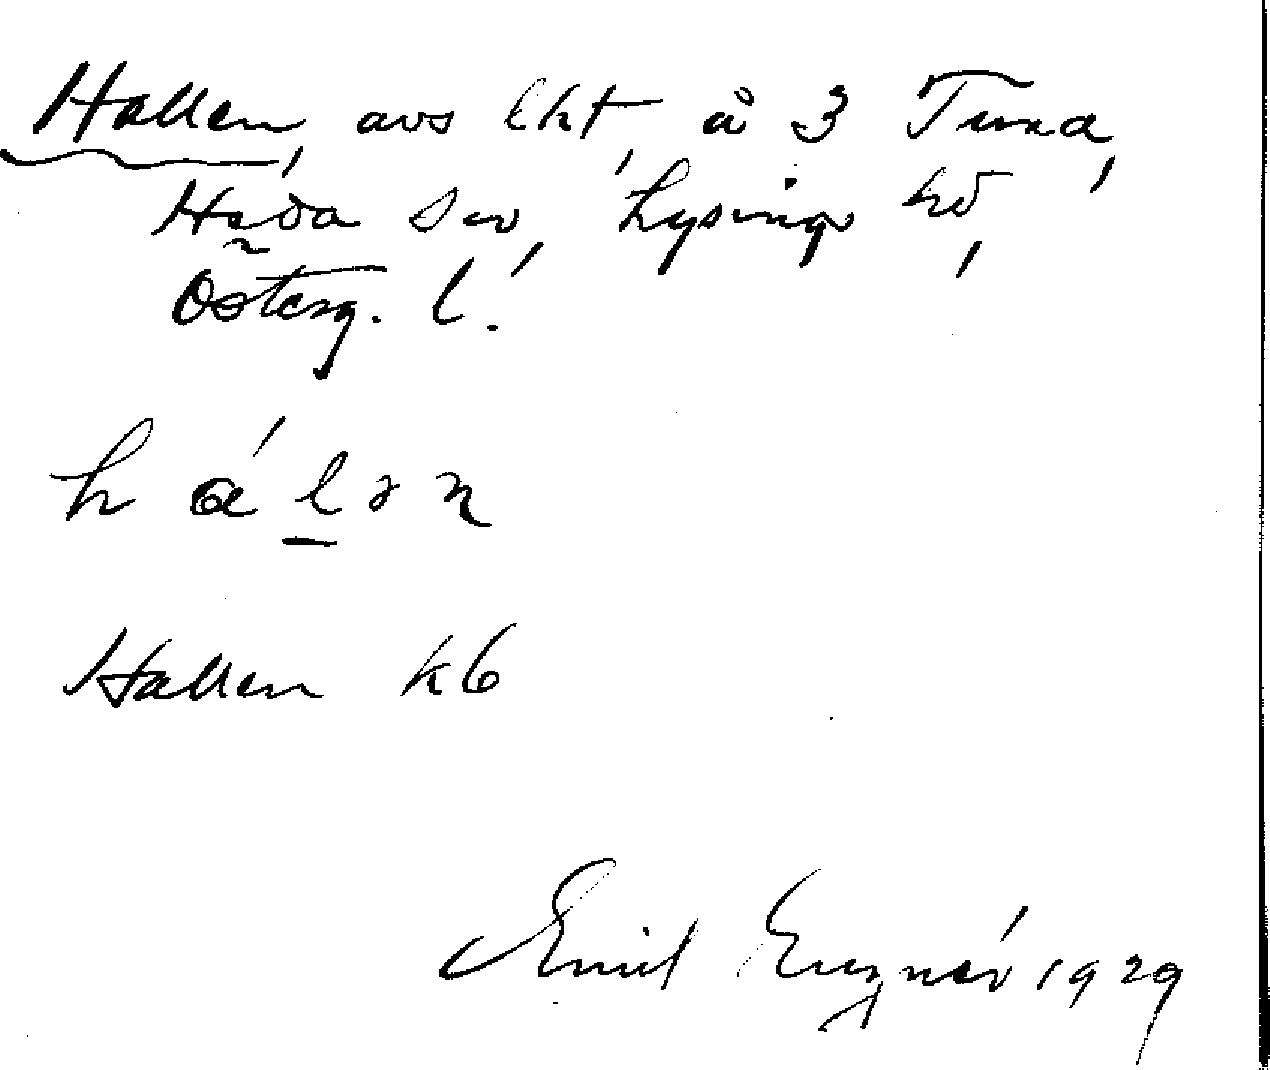 Hallen, avs lht, å 3 Tuna,
Heda sn, Lysings hd,
Österg. l.
h á l ə n
Hallen k6
Emil Eugnér 1929